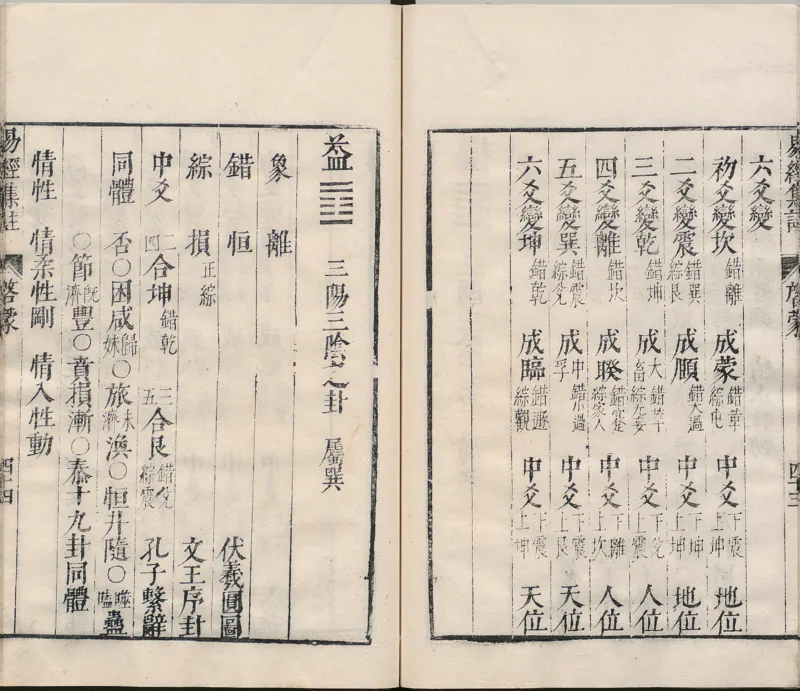 易經集註 啓蒙 四十三
六爻變
初爻變坎 錯離 成蒙 錯革綜屯 中爻 下震上坤 地位
二爻變震 錯巽綜艮 成頤 錯大過 中爻 下坤上坤 地位
三爻變乾 錯坤 成大畜 錯萃綜无妄 中爻 下兌上震 人位
四爻變離 錯坎 成睽 錯蹇綜家人 中爻 下離上坎 人位
五爻變巽 錯震綜兌 成中孚 錯小過 中爻 下震上艮 天位
六爻變坤 錯乾 成臨 錯遯綜觀 中爻 下震上坤 天位
益 三陽三陰之卦 屬巽
象 離
錯 恒 伏羲圓圖
綜 損 正綜 文王序卦
中爻 二四合坤 錯乾 三五合艮 錯兌綜震 孔子繫辭
同體 否○困咸歸妹○旅未濟渙○恒井隨○噬嗑蠱
○節既濟豐○賁損漸○泰十九卦同體
情性 情柔性剛 情入性動
易經集註 啓蒙 四十四